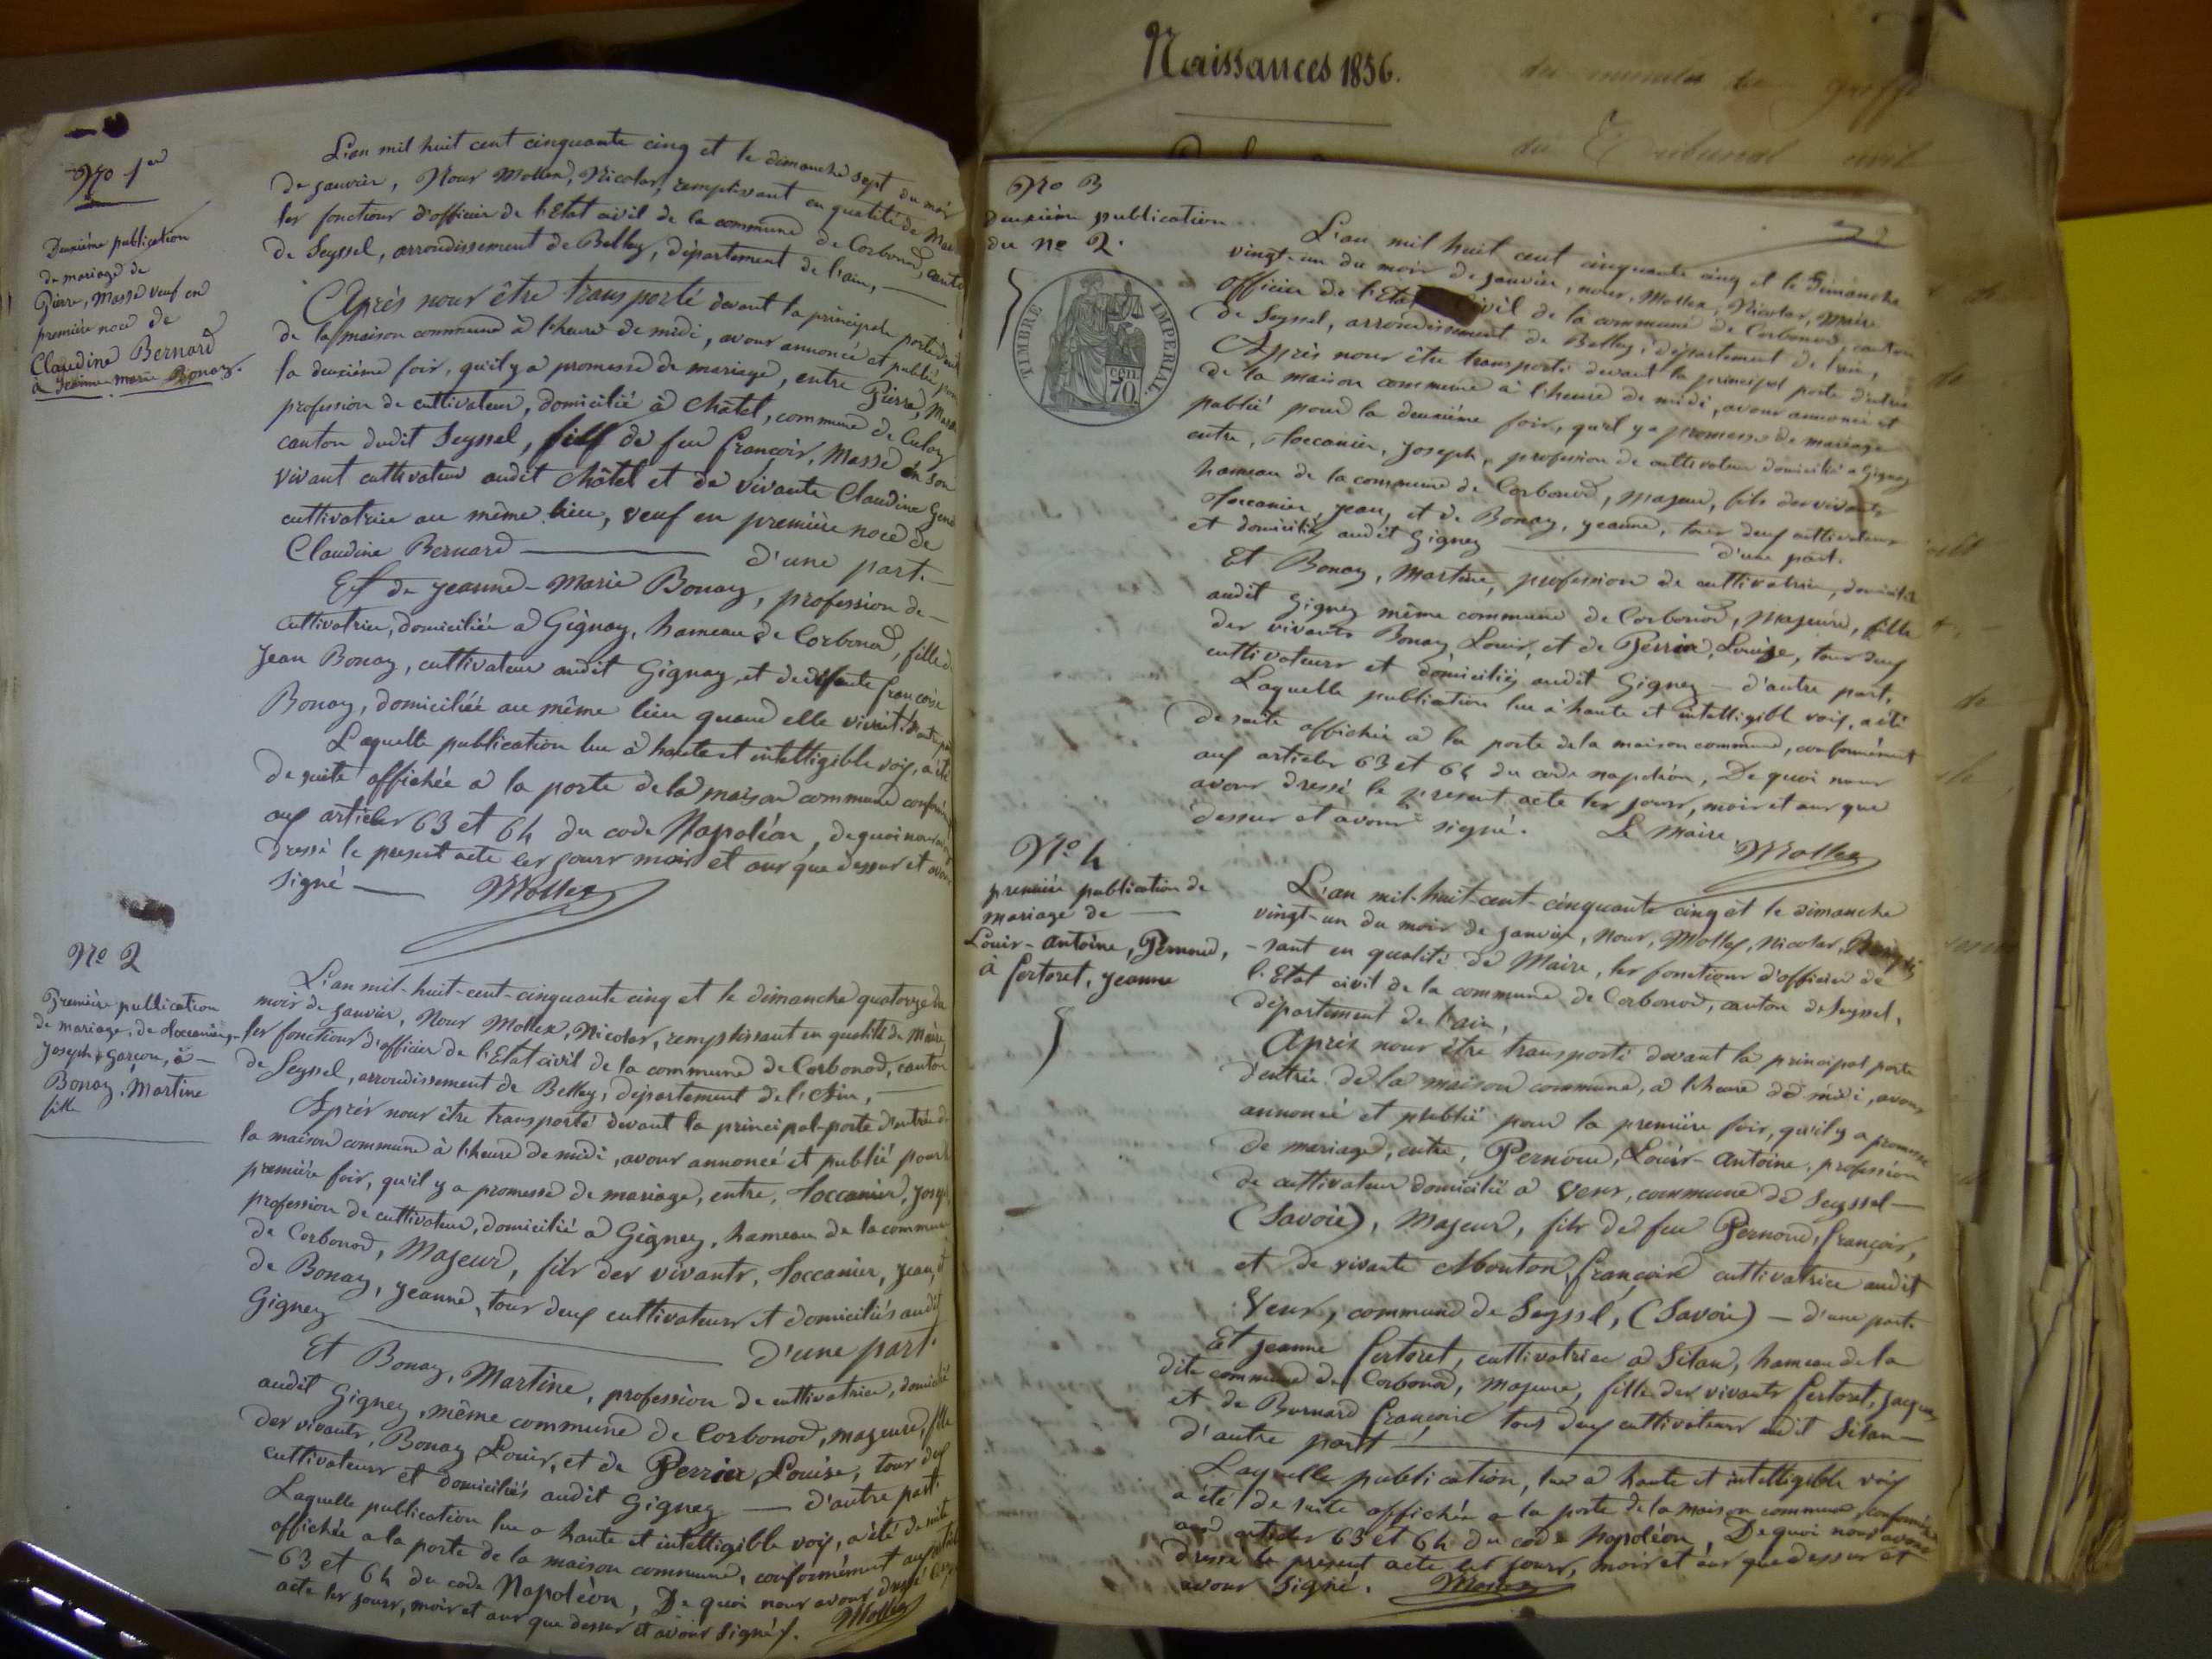 No 1er
Deuxième publication
de mariage de
Pierre, Masse veuf en
première noce de
Claudine Bernard
à Jeanne-Marie Bonaz.
L'an mil huit cent cinquante cinq et le dimanche sept du mois
de janvier, Nous Mollex, Nicolas, remplissant en qualité de Mai
les fonctions d'officier de l'Etat civil de la commune de Corbonod, canto
de Seyssel, arrondissement de Belley, département de l'ain,
Après nous être transporté devant la principale porte d'ent
de la maison commune à l'heure de midi, avons annoncé et publié pour
la deuxième fois, qu'il y a promesse de mariage, entre Pierre, Masse
profession de cultivateur, domicilié à Châtel, commune de Culoz
canton dudit Seyssel, fils de feu françois, Masse en son
vivant cultivateur audit Châtel et de vivante Claudine
cultivatrice au même lieu, veuf en première noce de
Claudine Bernard — d'une part.
Et de Jeanne-Marie Bonaz, profession de
cultivatrice, domiciliée a Gignay, hameau de Corbonod, fille d
Jean Bonaz, cultivateur audit Gignay, et de défunte françoise
Bonaz, domiciliée au même lieu quand elle vivait. d'autre par
Laquelle publication lue à haute et intelligible voix, a été
de suite affichée a la porte de la maison commune conformé
aux articles 63 et 64 du code Napoléon, de quoi nous
dressé le present acte les jours mois et ans que dessus et avons
signé — Mollex
No 2
Première publication
de mariage, de Loccanier,
Joseph, garçon, à
Bonaz, Martine
fille
L'an mil-huit-cent-cinquante cinq et le dimanche quatorze du
mois de janvier, Nous Mollex, Nicolas, remplissant en qualité de Maire
les fonctions d'officier de l'Etat civil de la commune de Corbonod, canton
de Seyssel, arrondissement de Belley, département de l'Ain,
Après nous être transporté devant la principal-porte d'entrée de
la maison commune à l'heure de midi, avons annoncé et publié pour l
première fois, qu'il y a promesse de mariage, entre, Loccanier, Josep
profession de cultivateur, domicilié a Gigney, hameau de la commun
de Corbonod, Majeur, fils des vivants, Loccanier, Jean, et
de Bonaz, Jeanne, tous deux cultivateurs et domiciliés audit
Gigney — d'une part.
Et Bonaz, Martine, profession de cultivatrice, domicilié
audit Gigney, même commune de Corbonod, majeure, fille
des vivants, Bonaz Louis, et de Perrier, Louise, tous deux
cultivateurs et domiciliés audit Gigney — d'autre part.
Laquelle publication lue a haute et intelligible voix, a été de suite
affichée a la porte de la maison commune, conformément aux articles
63 et 64 du code Napoléon, De quoi nous avons dressé le
acte les jours, mois et ans que dessus et avons signé. Mollex
Naissances 1856.
du Tribunal civil
No 3
deuxième publication
du No 2.
TIMBRE IMPERIAL
cen
70
L'an mil huit cent cinquante cinq et le Dimanche
vingt-un du mois de janvier, nous, Mollex, Nicolas, Maire
officier de l'Etat civil de la commune de Corbonod, canton
de Seyssel, arrondissement de Belley, département de l'ain,
Après nous être transporté devant la principal porte d'entrée
de la maison commune à l'heure de midi, avons annoncé et
publié pour la deuxième fois, qu'il y a promesse de mariage
entre, Loccanier, Joseph, profession de cultivateur domicilié a Gigney
hameau de la commune de Corbonod, Majeur, fils des vivants
Loccanier, Jean, et de Bonaz, Jeanne, tous deux cultivateurs
et domiciliés audit Gigney — d'une part.
Et Bonaz, Martine, profession de cultivatrice, domicilié
audit Gigney même commune de Corbonod, Majeure, fille
des vivants Bonaz Louis, et de Perrier, Louise, tous deux
cultivateurs et domiciliés audit Gigney — d'autre part.
Laquelle publication lue à haute et intelligible voix, a été
de suite affichée a la porte de la maison commune, conformément
aux articles 63 et 64 du code napoléon, De quoi nous
avons dressé le present acte les jours, mois et ans que
dessus et avons signé. Le Maire,
Mollex
No 4
première publication de
mariage de
Louis-Antoine, Pernoud,
à fertoret, Jeanne
L'an mil-huit-cent-cinquante cinq et le dimanche
vingt-un du mois de janvier, Nous, Mollex, Nicolas, Remplis
-sant en qualité de Maire, les fonctions d'officier de
l'Etat civil de la commune de Corbonod, canton de Seyssel,
département de l'ain,
Après nous être transporté devant la principal porte
d'entrée de la maison commune, a l'heure de midi, avons
annoncé et publié pour la première fois, qu'il y a promesse
de mariage, entre, Pernoud, Louis-Antoine, profession
de cultivateur domicilié a Vens, commune de Seyssel
(Savoie), Majeur, fils de feu Pernoud, françois,
et de vivante Mouton, françoise cultivatrice audit
Vens, commune de Seyssel, (Savoie) — d'une part.
Et Jeanne fertoret, cultivatrice a Silan, hameau de la
dite commune de Corbonod, majeure, fille des vivants fertoret, Jacques
et de Burnard françoise tous deux cultivateurs audit Silan—
d'autre part
Laquelle publication, lue a haute et intelligible voix
a été de suite affichée a la porte de la maison commune, conformément
aux articles 63 et 64 du code Napoléon, De quoi nous avons
dressé le présent acte les jours, mois et ans que dessus et
avons signé. Mollex